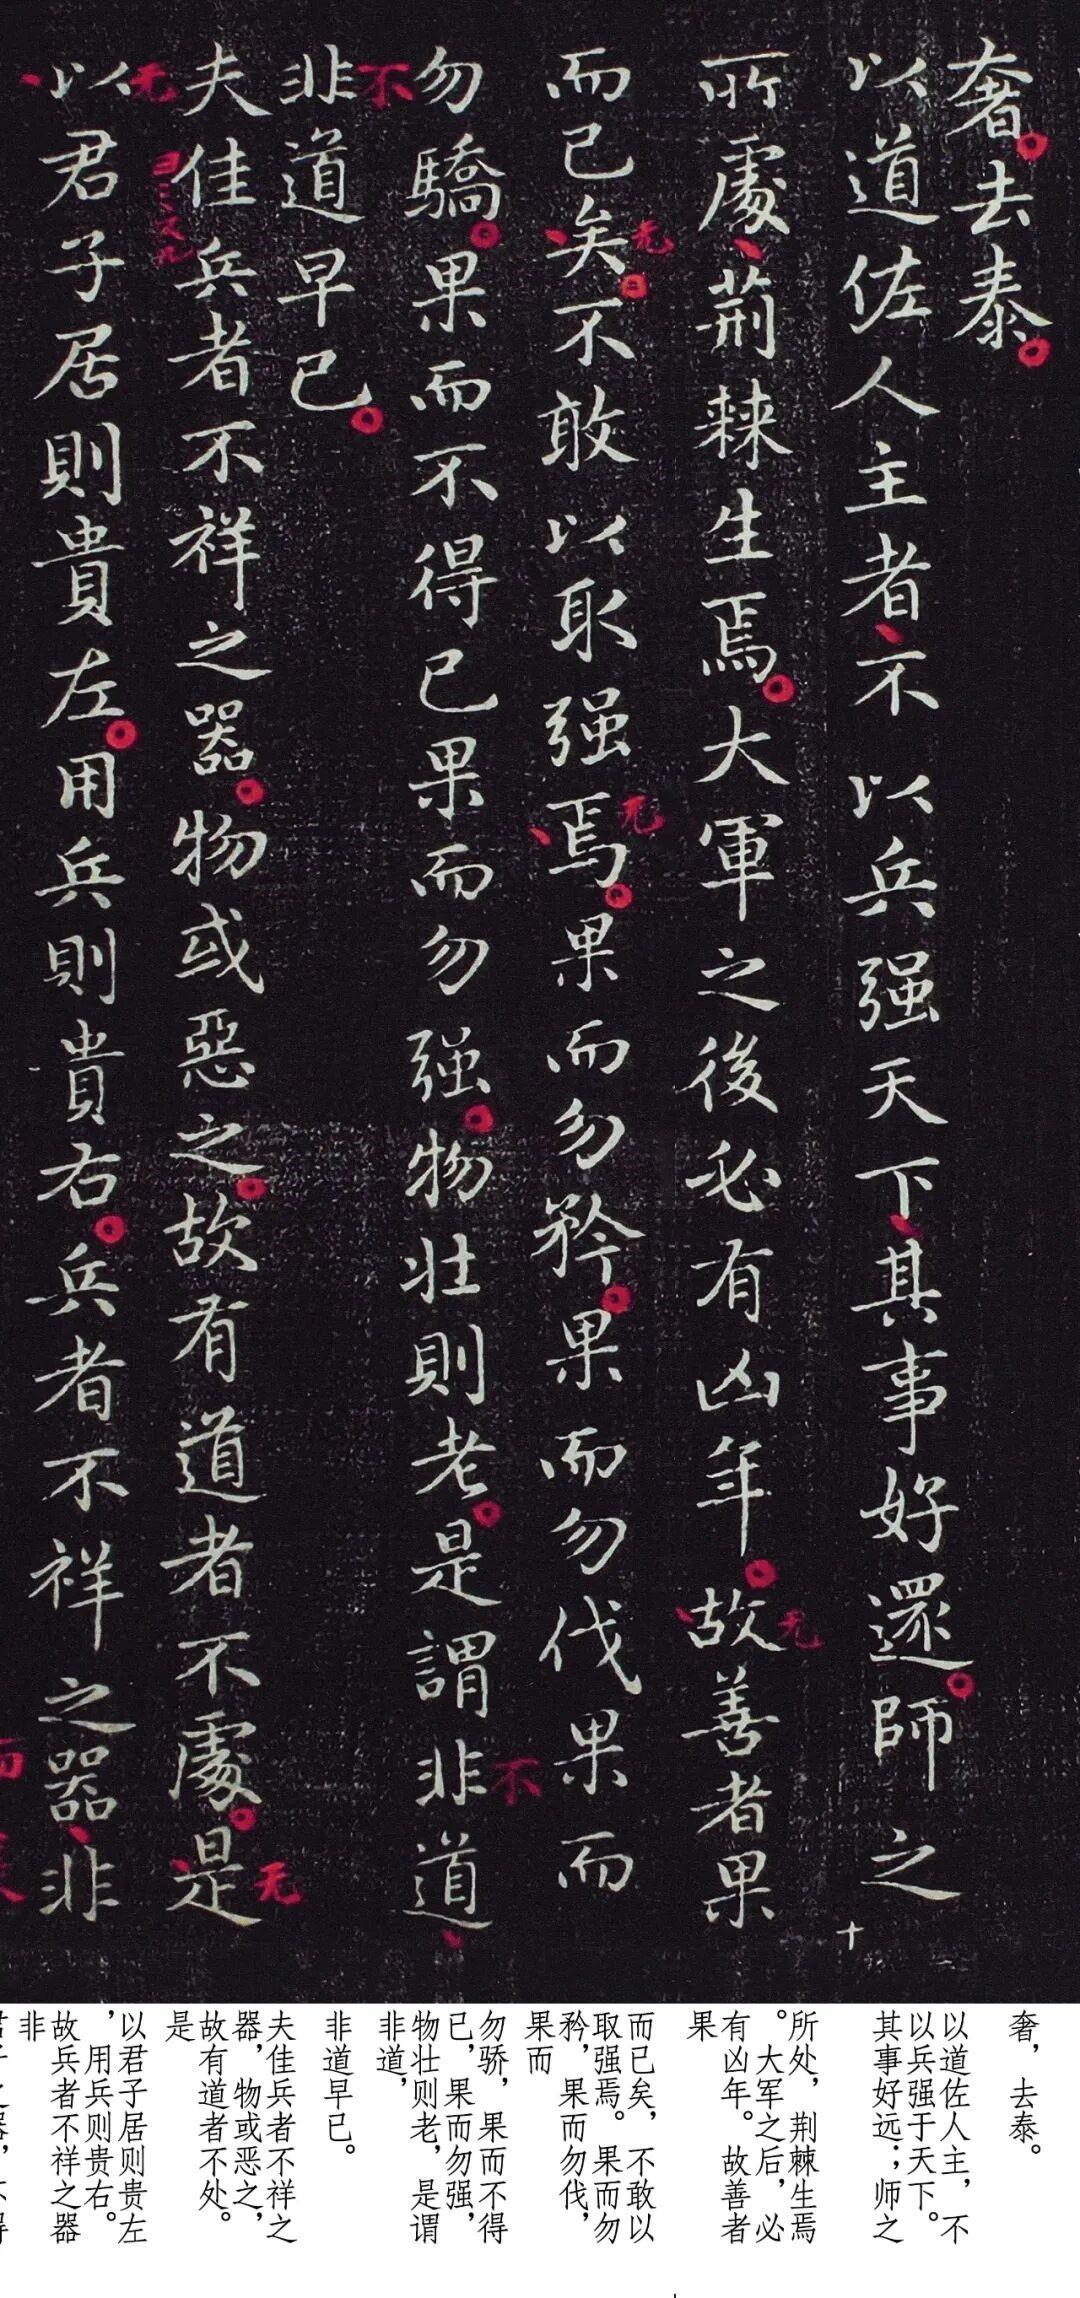 奢去泰
以道佐人主者不以兵强天下其事好還師之
所處荊棘生焉大軍之後必有凶年故善者果
而已矣不敢以取强焉果而勿矜果而勿伐果而
勿驕果而不得已果而勿强物壯則老是謂非道
非道早已
夫佳兵者不祥之器物或惡之故有道者不處是
以君子居則貴左用兵則貴右兵者不祥之器非
无
无
无
不
不
无
无
而
十
奢，去泰。
以道佐人主，不
以兵强于天下。
其事好远；师之
所处，荆棘生焉
。大军之后，必
有凶年。故善者
果
而已矣，不敢以
取强焉。果而勿
矜，果而勿伐，
果而
勿骄，果而不得
已，果而勿强，
物壮则老，是谓
非道，
非道早已。
夫佳兵者不祥之
器，物或恶之，
故有道者不处。
是
以君子居则贵左
，用兵则贵右。
故兵者不祥之器
非